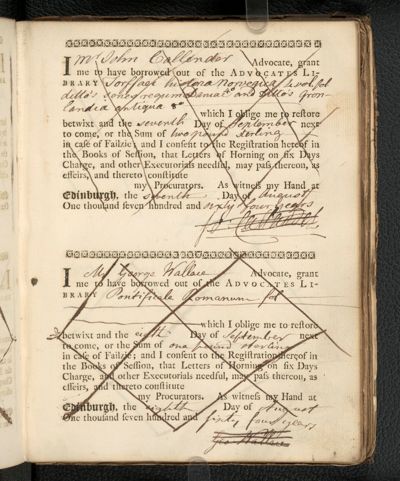 I Mr John Callender Advocate, grant
me to have borrowed out of the ADVOCATES LI-
BRARY Torffaei historia Norvegica 4 vol. fol
ditto's Series regum Daniae and ditto's Gron-
landia antiqua 8o
which I oblige me to restore
betwixt and the seventh Day of September next
to come, or the Sum of two pound sterling
in case of Failzie; and I consent to the Registration hereof in
the Books of Session, that Letters of Horning on six Days
Charge, and other Executorials needful, may pass thereon, as
effeirs, and thereto constitute
my Procurators. As witness my Hand at
Edinburgh, the seventh Day of August
One thousand seven hundred and sixty four years
I Mr George Wallace Advocate, grant
me to have borrowed out of the ADVOCATES LI-
BRARY Pontificale Romanum fol
which I oblige me to restore
betwixt and the eighth Day of September next
to come, or the Sum of one pound sterling
in case of Failzie; and I consent to the Registration hereof in
the Books of Session, that Letters of Horning on six Days
Charge, and other Executorials needful, may pass thereon, as
effeirs, and thereto constitute
my Procurators. As witness my Hand at
Edinburgh, the eighth Day of August
One thousand seven hundred and sixty four years
Geo Wallace